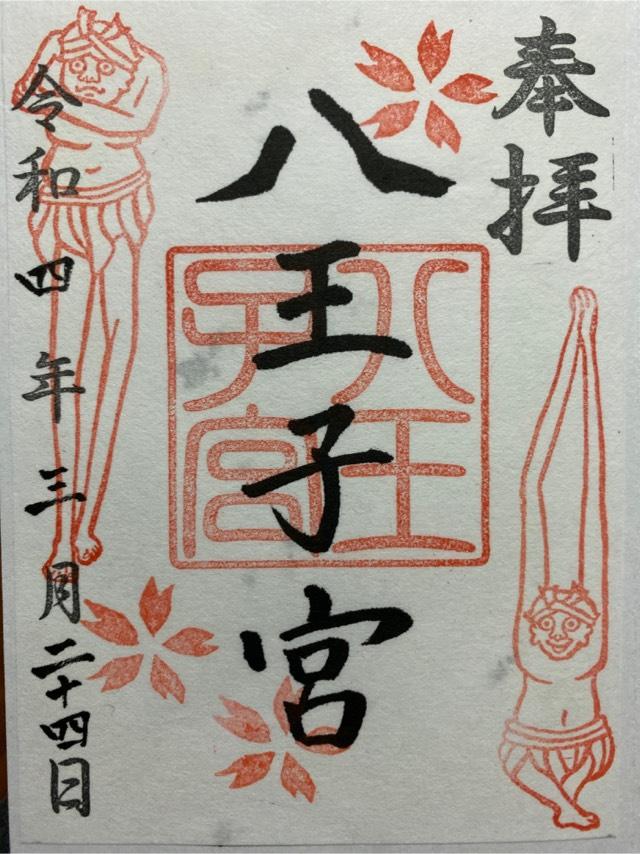 奉拝
八王子宮
八王
子宮
令和四年三月二十四日